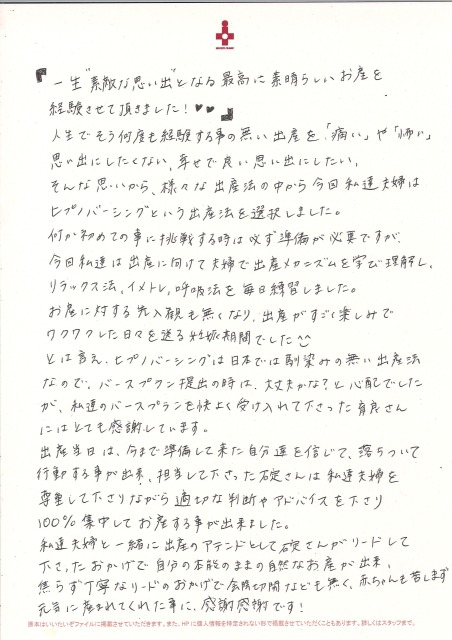 『一生"素敵な思い出"となる最高に素晴らしいお産を
経験させて頂きました！♥♥』
人生でそう何度も経験する事の無い出産を、「痛い」や「怖い」
思い出にしたくない、幸せで良い思い出にしたい。
そんな思いから、様々な出産法の中から今回私達夫婦は
ヒプノバーシングという出産法を選択しました。
何か初めての事に挑戦する時は必ず準備が必要ですが、
今回私達は出産に向けて夫婦で出産メカニズムを学び理解し、
リラックス法、イメトレ、呼吸法を毎日練習しました。
お産に対する先入観も無くなり、出産がすごく楽しみで
ワクワクした日々を送る妊娠期間でした
とは言え、ヒプノバーシングは日本では馴染みの無い出産法
なので、バースプラン提出の時は、大丈夫かな？と心配でした
が、私達のバースプランを快よく受け入れて下さった育良さん
にはとても感謝しています。
出産当日は、今まで準備して来た自分達を信じて、落ちついて
行動する事が出来、担当して下さった碇さんは私達夫婦を
尊重して下さりながら適切な判断やアドバイスを下さり
100%集中してお産する事が出来ました。
私達夫婦と一緒に出産のアテンドとして碇さんがリードして
下さったおかげで自分の本能のままの自然なお産が出来、
焦らず丁寧なリードのおかげで会陰切開なども無く、赤ちゃんも苦しまず
元気に産まれてくれた事に、感謝感謝です！
原本はいいたいぞファイルに掲載させていただきます。また、HPに個人情報を特定されない形で掲載させていただくこともあります。詳しくはスタッフまで。